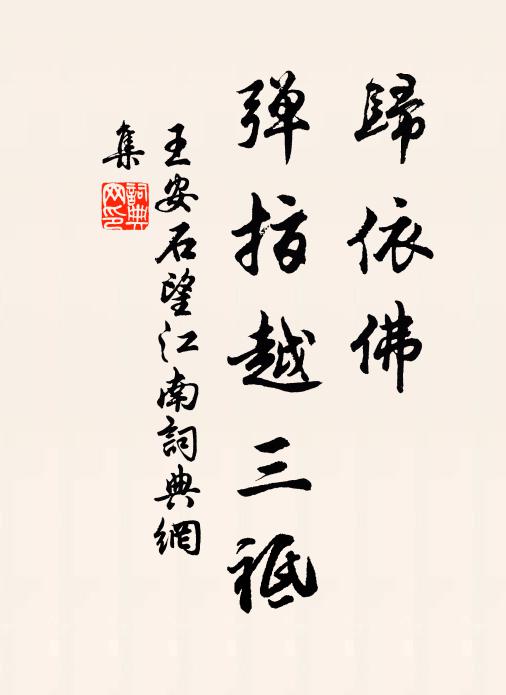 歸依佛
彈指越三祇
王安石望江南詞典網
集
詞典網印